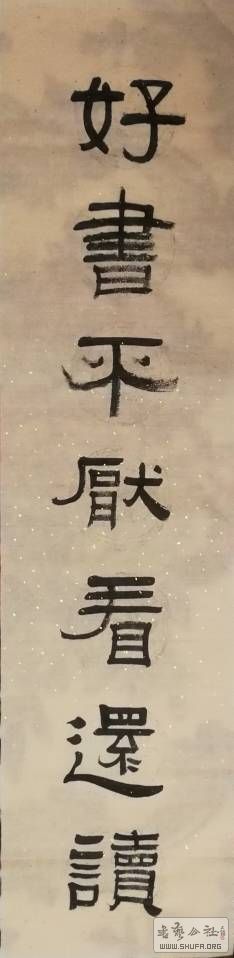 好書不厭看還讀
书艺公社
WWW.SHUFA.ORG